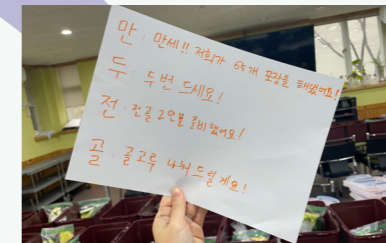 만. 만세!! 저희가 65개 포장을 해냈어요!
두. 두번 드세요!
전. 전골 2인분 준비했어요!
골. 골고루 나눠드릴게요!